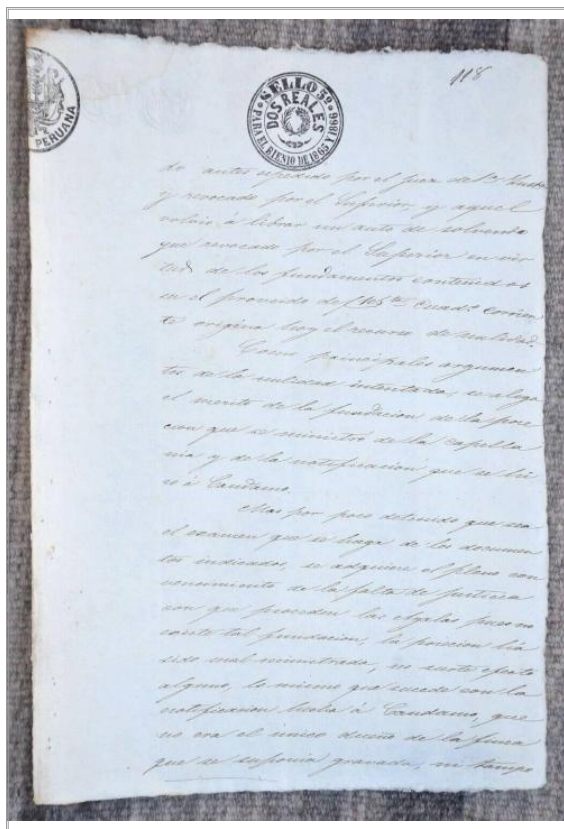 118
PERUANA
SELLO 5º
DOS REALES
PARA EL BIENIO DE 1865 Y 1866
do autos espedido por el juez de
y revocado por el Superior, y aquel
volvió á librar un auto de solvendo
que revocado por el Superior en vir
tud de los fundamentos contenidos
en el proveido de cuadº corrien
te origina hoy el recurso de nulidad.
Como principales argumen
tos de la nulidad intentada, se alega
el merito de la fundicion de la pose
cion que se ministró de la capella
nia y de la notificacion que se hi
zo á Candamo.
Mas por poco detenido que sea
el examen que se haga de los documen
tos indicados, se adquiere el pleno con
vencimiento de la falta de justicia
con que proceden las pues no
existe tal fundacion, la posicion ha
sido mal ministrada, no surte efecto
alguno, lo mismo que sucede con la
notificacion hecha á Candamo, que
no era el unico dueño de la finca
que se suponia gravada, ni tampo